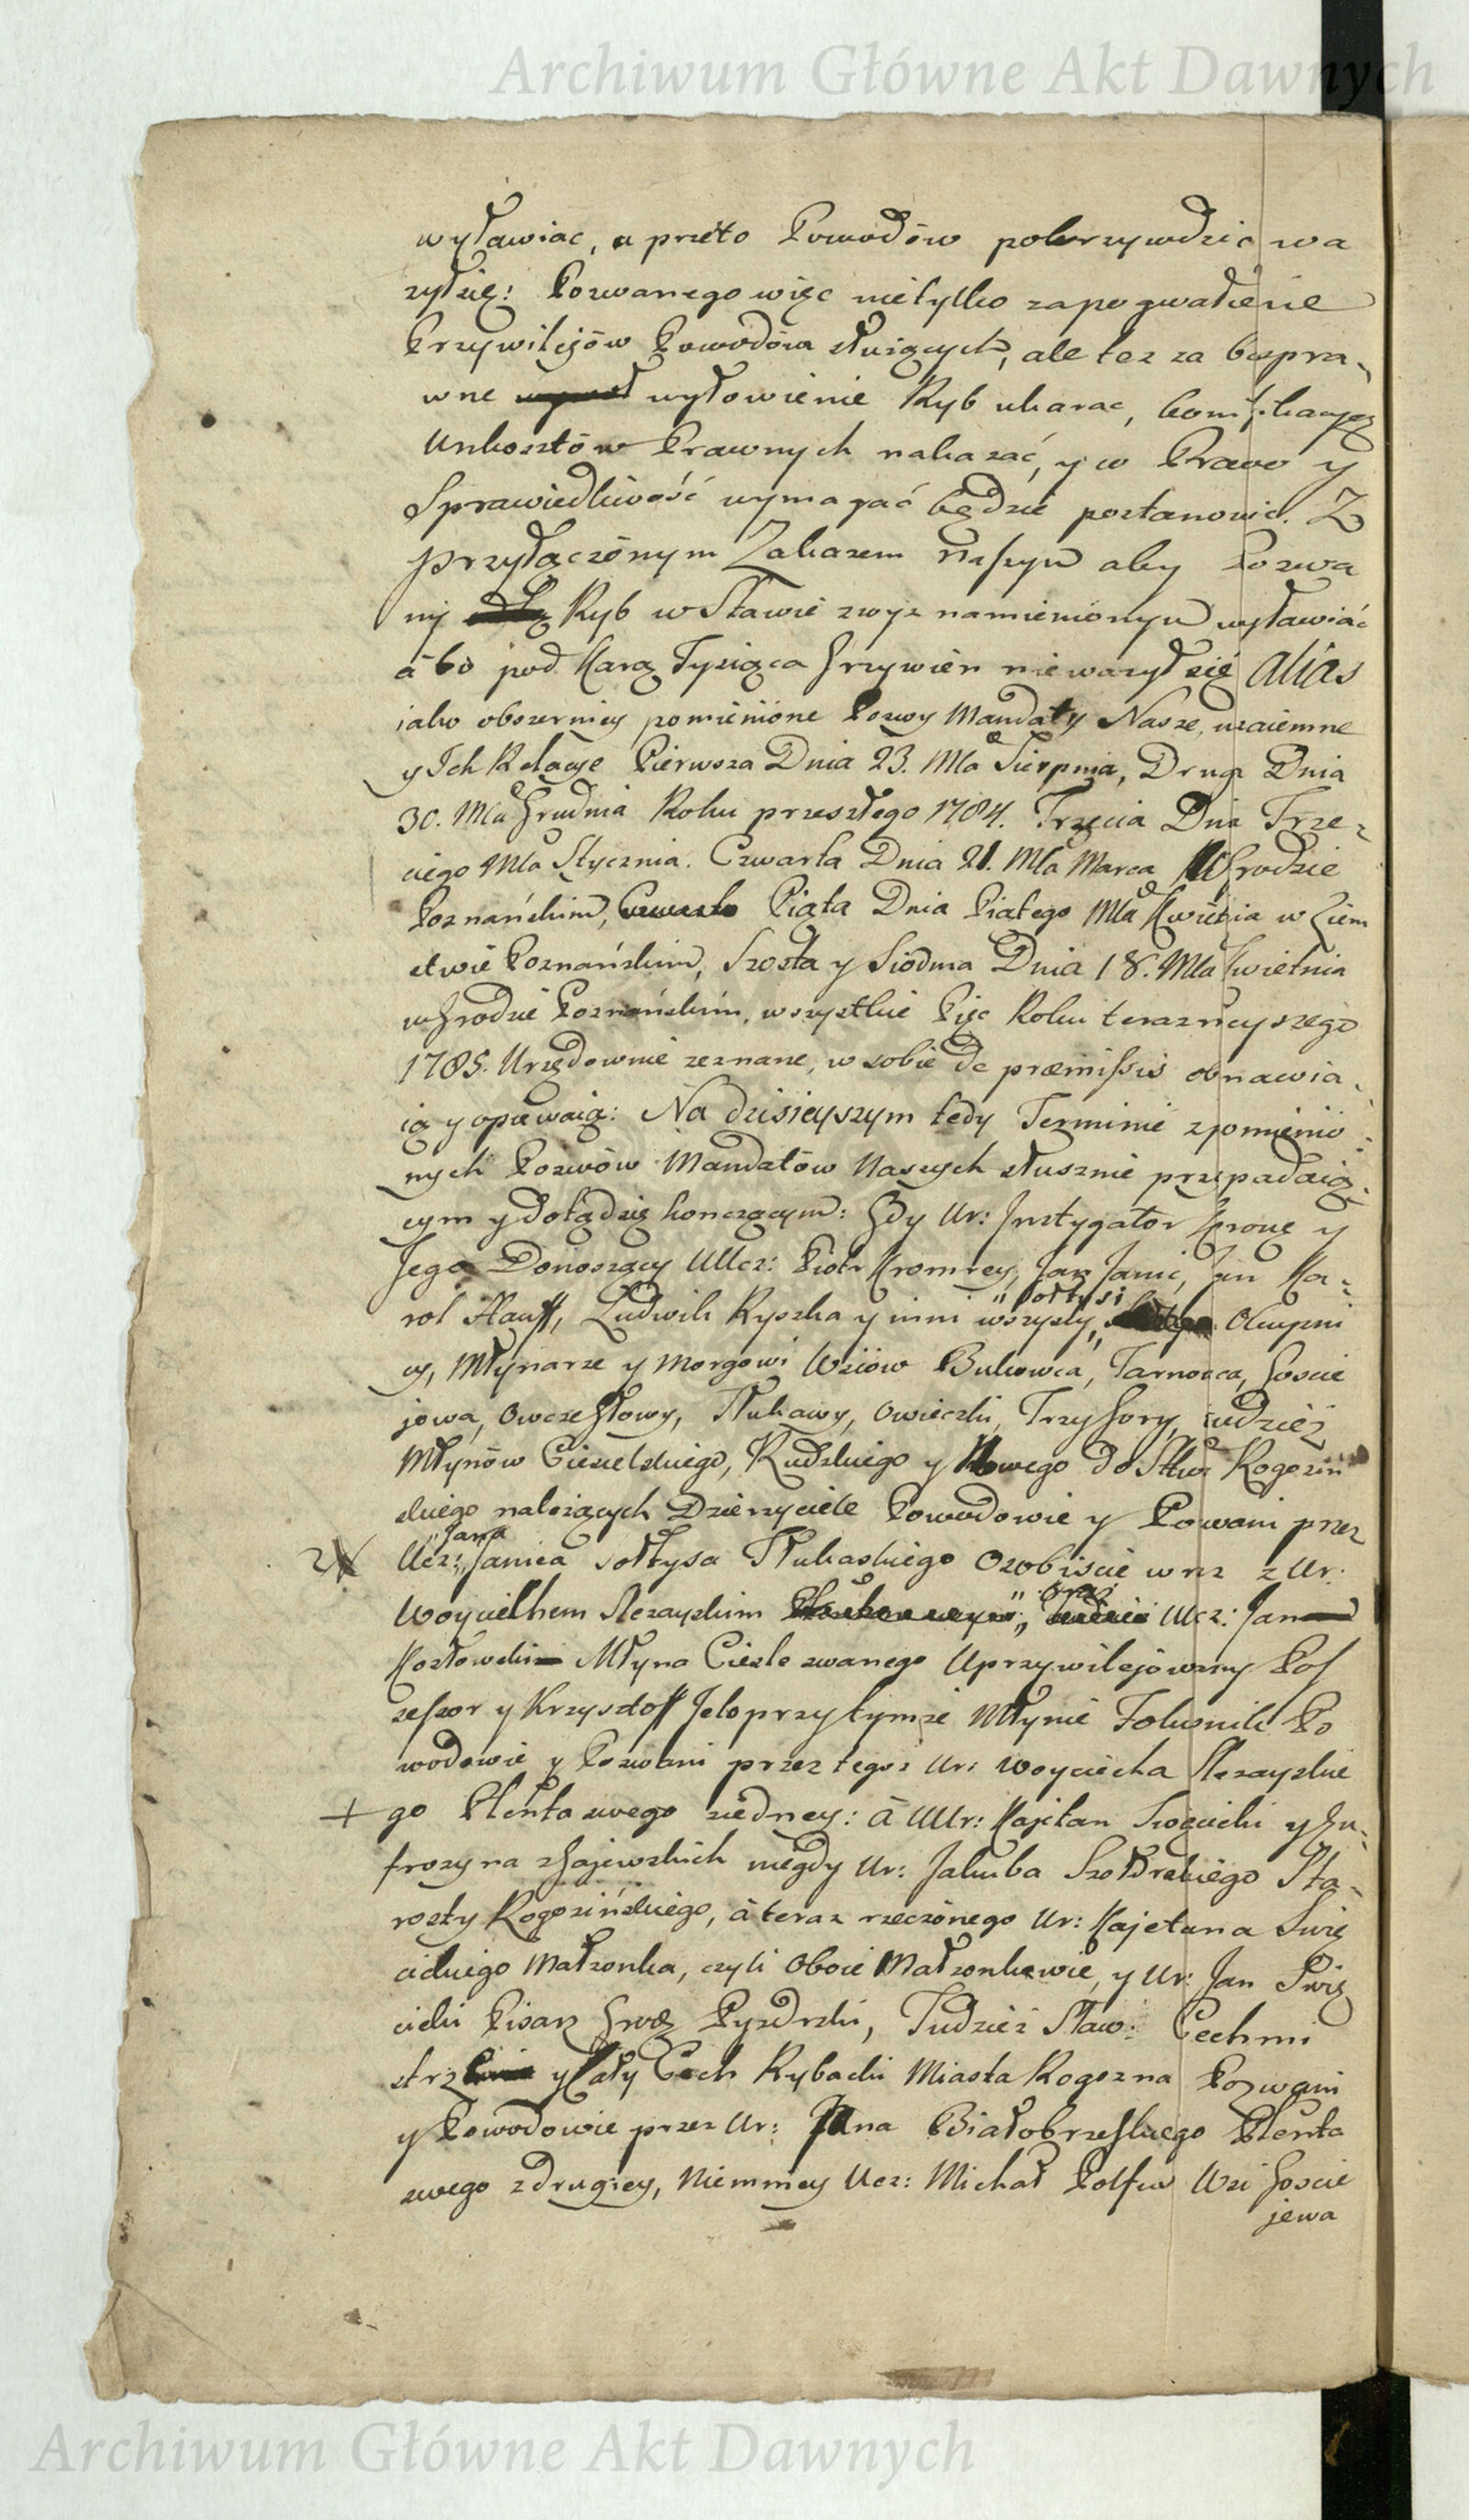 Archiwum Główne Akt Dawnych
wyławiac, a przeto Powodów pokrzywdzic wa
zył się: Pozwanego więc nietylko za pogwałcenie
Przywilejów Powodom słuzących, ale tez za bezpra-
wne wyłowienie Ryb ukarac, kom
Unkosztów Prawnych nakazać, y w Prawo y
Sprawiedliwość wymagać będzie postanowic. Z
przyłączonym Zakazem Naszym aby Pozwa
ny Ryb w Stawie zwyz namienionym wyławiać
abo pod Karą Tysiąca Grzywien niewazył się alias
iako obszerniey pomienione Pozwy Mandaty Nasze, wzaiemne
y Ich Relacye Pierwsza Dnia 23. Mca Sierpnia, Druga Dnia
30. Mca Grudnia Roku przeszłego 1784. Trzecia Dnia Trze-
ciego Mca Stycznia. Czwarta Dnia 21. Mca Marca W Grodzie
Poznańskim, Czwarta Piąta Dnia Piątego Mca Kwietnia w Ziem
stwie Poznańskim, Szosta y Siodma Dnia 18. Mca Kwietnia
w Grodzie Poznańskim, wszystkie Pięc Roku terazneyszego
1785. Urzędownie zeznane, w sobie de præmissis obnawia-
ią y opiewaią: Na dzisieyszym tedy Terminie z pomienio-
nych Pozwów Mandatów Naszych słusznie przypadaią-
cym y dotąd się konczącym: Gdy Ur: Instygator Koronę y
Jego Donoszący UUcz: Piotr Kromrey, Jan Janic, Jan Ka-
rol Hauff, Ludwik Ryszka y inni wszyscy, "sołtysi Okupni
cy, Młynarze y Morgowi Wsiów Bukowca, Tarnowca, Goscie
jowa, Owczegłowy, Słukawy, Owieczki, Trzy Gory, tudziez
Młynów Ciesielskiego, Rudzkiego y Nowego do Sttwa Rogozin
skiego nalezących Dzierzyciele Powodowie y Pozwani przez
Ucz: "Jana Janica sołtysa Słukaskiego Osobiscie wraz z Ur:
Woyciechem Slezayskim "oraz Ucz: Jan
Kozłowski Młyna Ciesle zwanego Uprzywilejowany Pos
sessor y Krzysztoff Jelo przytymze Młynie Folusnik Po
wodowie y Pozwani przez tegoz Ur: Woyciecha Slezayskie
+ go Plenta swego ziedney: à UUr: Kajetan Swięcicki y Eu-
frozyna z Gajewskich niegdy Ur: Jakuba Szołdrskiego Sta-
rosty Rogozińskiego, à teraz rzeczonego Ur: Kajetana Swię
cickiego Małzonka, czyli Oboie Małzonkowie, y Ur: Jan Swię
cicki Pisarz Grodz Pyzdrski, Tudziez Sław: Cechmi
strz y Cały Cech Rybacki Miasta Rogozna Pozwani
y Powodowie przez Ur: Jana Białobrzeskiego Plenta
swego zdrugiey, Niemniey Ucz: Michał Polfus Wsi Goscie
jewa
Archiwum Główne Akt Dawnych